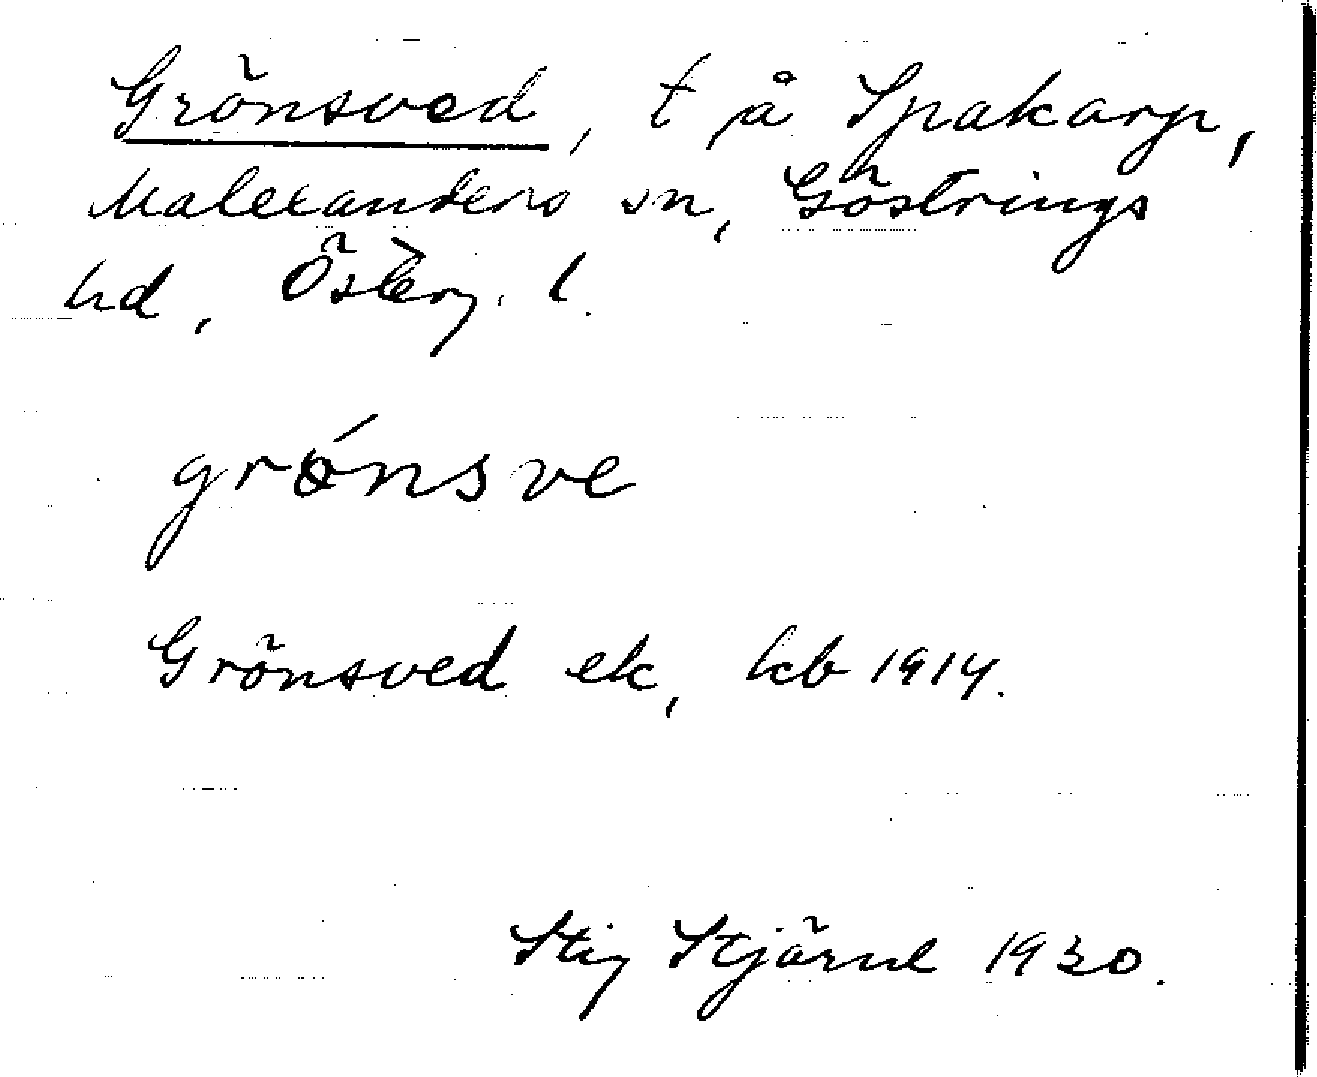 Grönsved, t å Spakarp,
Malexanders sn, Göstrings
hd, Österg. l.
grǿnsve
Grönsved ek, kb 1914.
Stig Stjärne 1930.